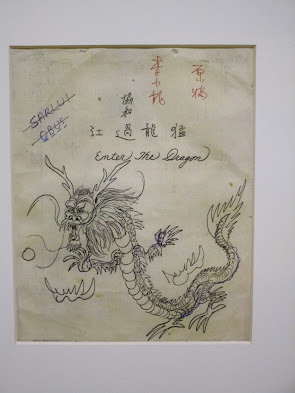 原稿
李小龍
協和
猛龍過江
Enter The Dragon